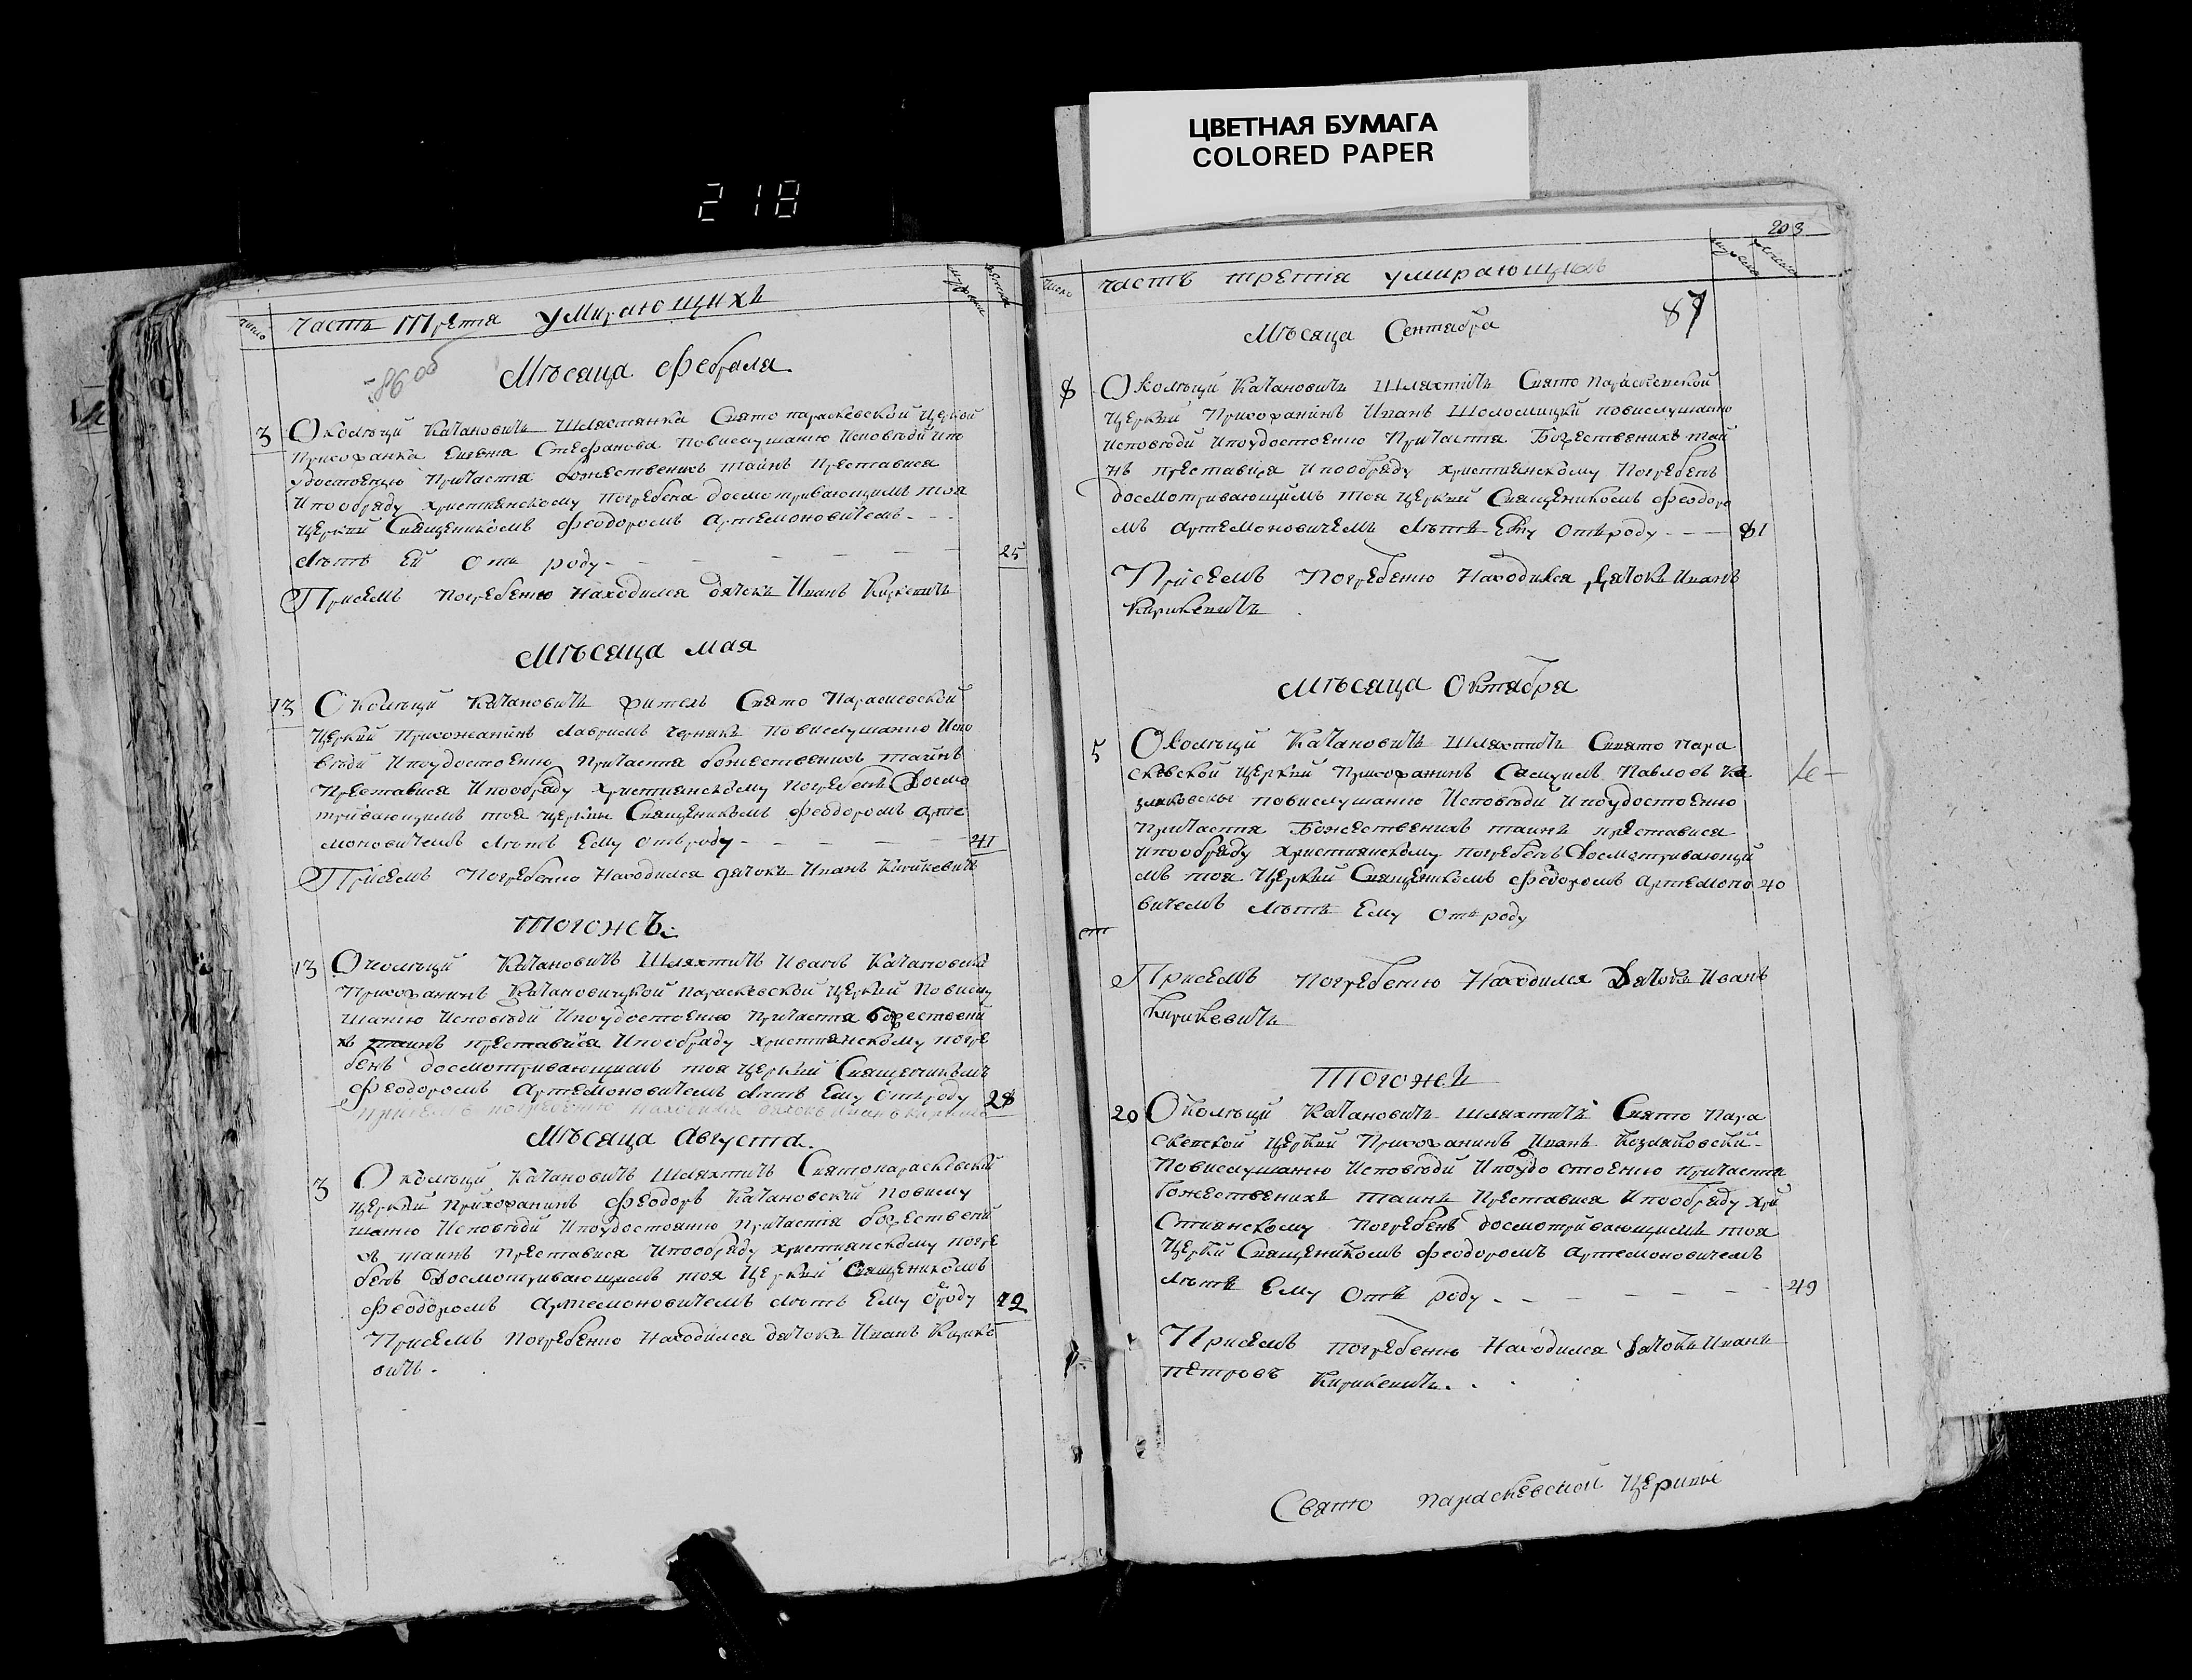 ЦВЕТНАЯ БУМАГА
COLORED PAPER
218
число Часть Третія Умирающихъ
86 об
Мѣсяца Февраля
3 Околѣци Качановичъ Шляхтянка Свято параскевской Церкви
Прихожанка Стефанова Повислушанію Исповѣди Ипо
удостоенію Причастія божественихъ таинъ Преставися
Ипообряду христіянскому погребена досмотривающимъ тоя
Церкви Священикомъ Феодоромъ Артемоновичемъ
лѣтъ Ей Отъ роду 25
Присемъ погребенію Находился дячокъ Иванъ Кирикевичъ
Мѣсяца мая
13 Околѣци Качановичъ житель Свято Параскевской
Церкви Прихожанинъ Повислушанію Испо
вѣди Ипоудостоенію Причастія божественихъ таинъ
Преставися Ипообряду христіянскому погребенъ Досмо
тривающимъ тоя церкви Священикомъ Феодоромъ Арте
моновичемъ лѣтъ Ему отъ роду 41
Присемъ Погребенію Находился дячокъ Иванъ Кирикевичъ
Тогожъ
13 Околѣци Качановичъ Шляхтичъ Иванъ Качановски
Прихожанинъ Качановицкой параскевской Церкви Повислу
шанію Исповѣди Ипоудостоенію Причастія божествени
хъ таинъ преставися Ипообряду христіянскому погре
бенъ досмотривающимъ тоя Церкви Священикомъ
Феодоромъ Артемоновичемъ лѣтъ Ему отъ роду 28
присемъ погребенію находился дячокъ Иванъ
Мѣсяца Августа
3 Околѣци Качановичъ Шляхтичъ Святопараскевски
Церкви Прихожанинъ Феодоръ Качановски Повислу
шанію Исповѣди Ипоудостоянію причастія божествени
хъ таинъ преставися Ипообряду христіянскому погре
бенъ Досмотривающимъ тоя Церкви Священикомъ
Феодоромъ Артемоновичемъ лѣтъ Ему роду
Присемъ Погребенію Находился дячокъ Иванъ Кирике
вичъ
203
число часть третія умирающихъ
87
Мѣсяца Сентября
8 Околѣци Качановичъ Шляхтичъ Свято Параскевской
Церкви Прихожанинъ Иванъ Шоломицки повислушанію
Исповѣди Ипоудостоенію Причастія Божественихъ таи
нъ преставися Ипообряду христіянскому Погребенъ
досмотривающимъ тоя Церкви Священикомъ Феодоро
мъ Артемоновичемъ лѣтъ Ему отъ роду 81
Присемъ Погребенію Находился Дячокъ Иванъ
Кирикевичъ
Мѣсяца Октября
5 Околѣци Качановичъ Шляхтичъ Свято Пара
скевской Церкви Прихожанинъ Павловъ Ко
повислушанію Исповѣди Ипоудостоенію
Причастія Божественихъ таинъ преставися
Ипообряду христіянскому погребенъ Досмотривающи
мъ тоя Церкви Священикомъ Феодоромъ Артемоно 40
вичемъ лѣтъ Ему Отъ роду
Присемъ погребенію Находился Дячокъ Иванъ
Кирикевичъ
Тогожъ
20 Околѣци Качановичъ Шляхтичъ Свято Пара
скевской Церкви Прихожанинъ Иванъ Козляковски
Повислушанію Исповѣди Ипоудостоенію причастія
божественихъ таинъ Преставися Ипообряду Хри
стіянскому погребенъ досмотривающимъ тоя
Церкви Священикомъ Феодоромъ Артемоновичемъ
лѣтъ Ему Отъ роду 49
Присемъ погребенію Находился Дячокъ Иванъ
петровъ Кирикевичъ
Свято параскевской Церкви